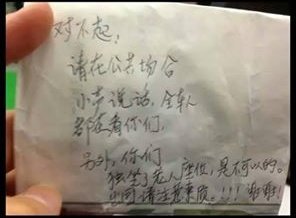 对不起,
请在公共场合
小声说话,全车人
都在看你们,
另外,你们
独坐了老人座位,是不可以的。
请注意素质。!!! 谢谢!